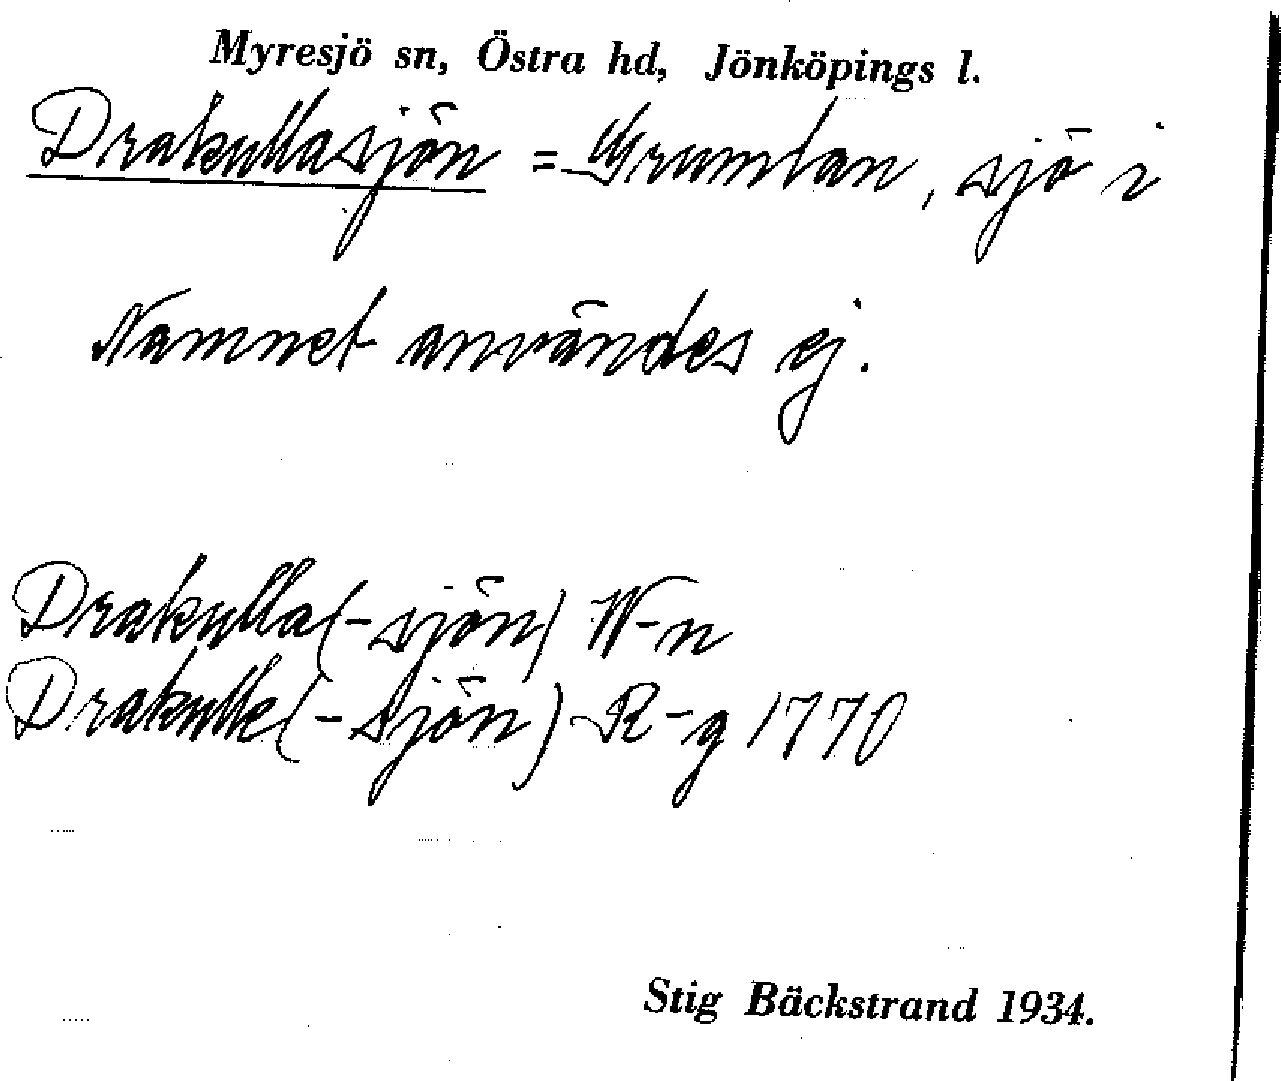 Myresjö sn, Östra hd, Jönköpings l.
Drakullasjön = Grumlan, sjö i
Namnet användes ej.
Drakulla(-sjön) W-n
Drakulle(-sjön) R-g 1770
Stig Bäckstrand 1934.